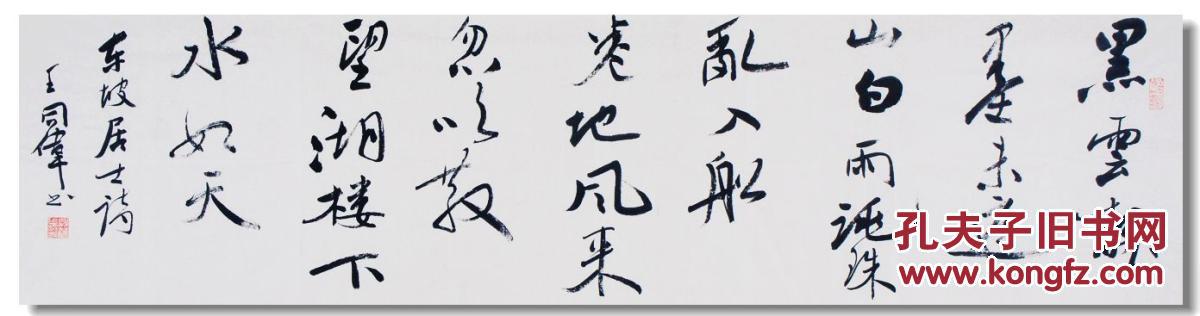 黑雲翻
墨未遮
山白雨跳珠
亂入船
卷地风来
忽吹散
望湖楼下
水如天
东坡居士诗
王同偉书
孔夫子旧书网
www.kongfz.com